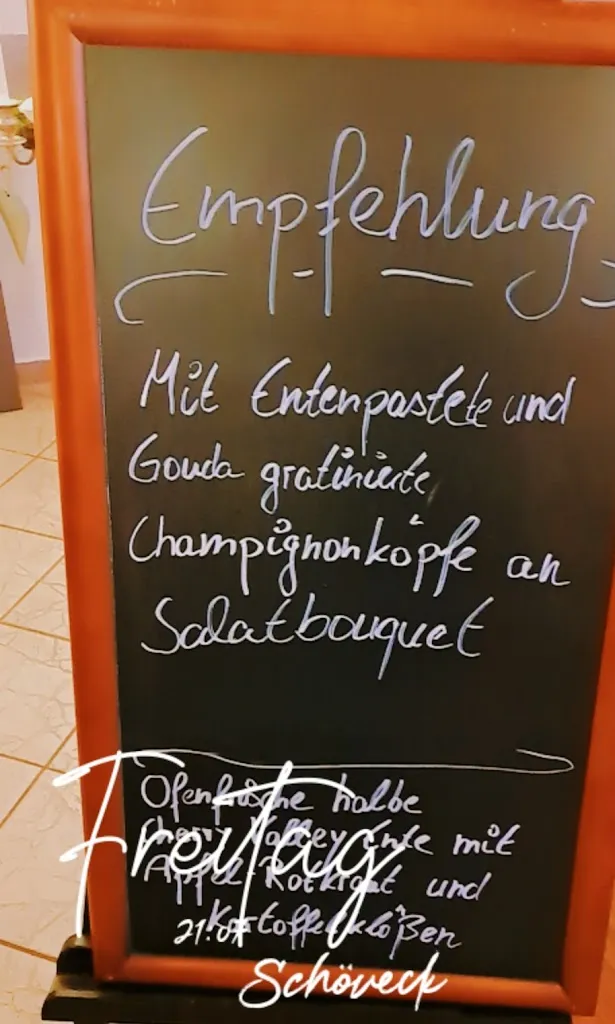 Empfehlung
Mit Entenpastete und
Gouda gratinierte
Champignonköpfe an
Salatbouquet
Ofenfrische halbe
Cherry Valley Ente mit
Apfel-Rotkraut und
Kartoffelklößen
Freitag
21.07
Schöveck